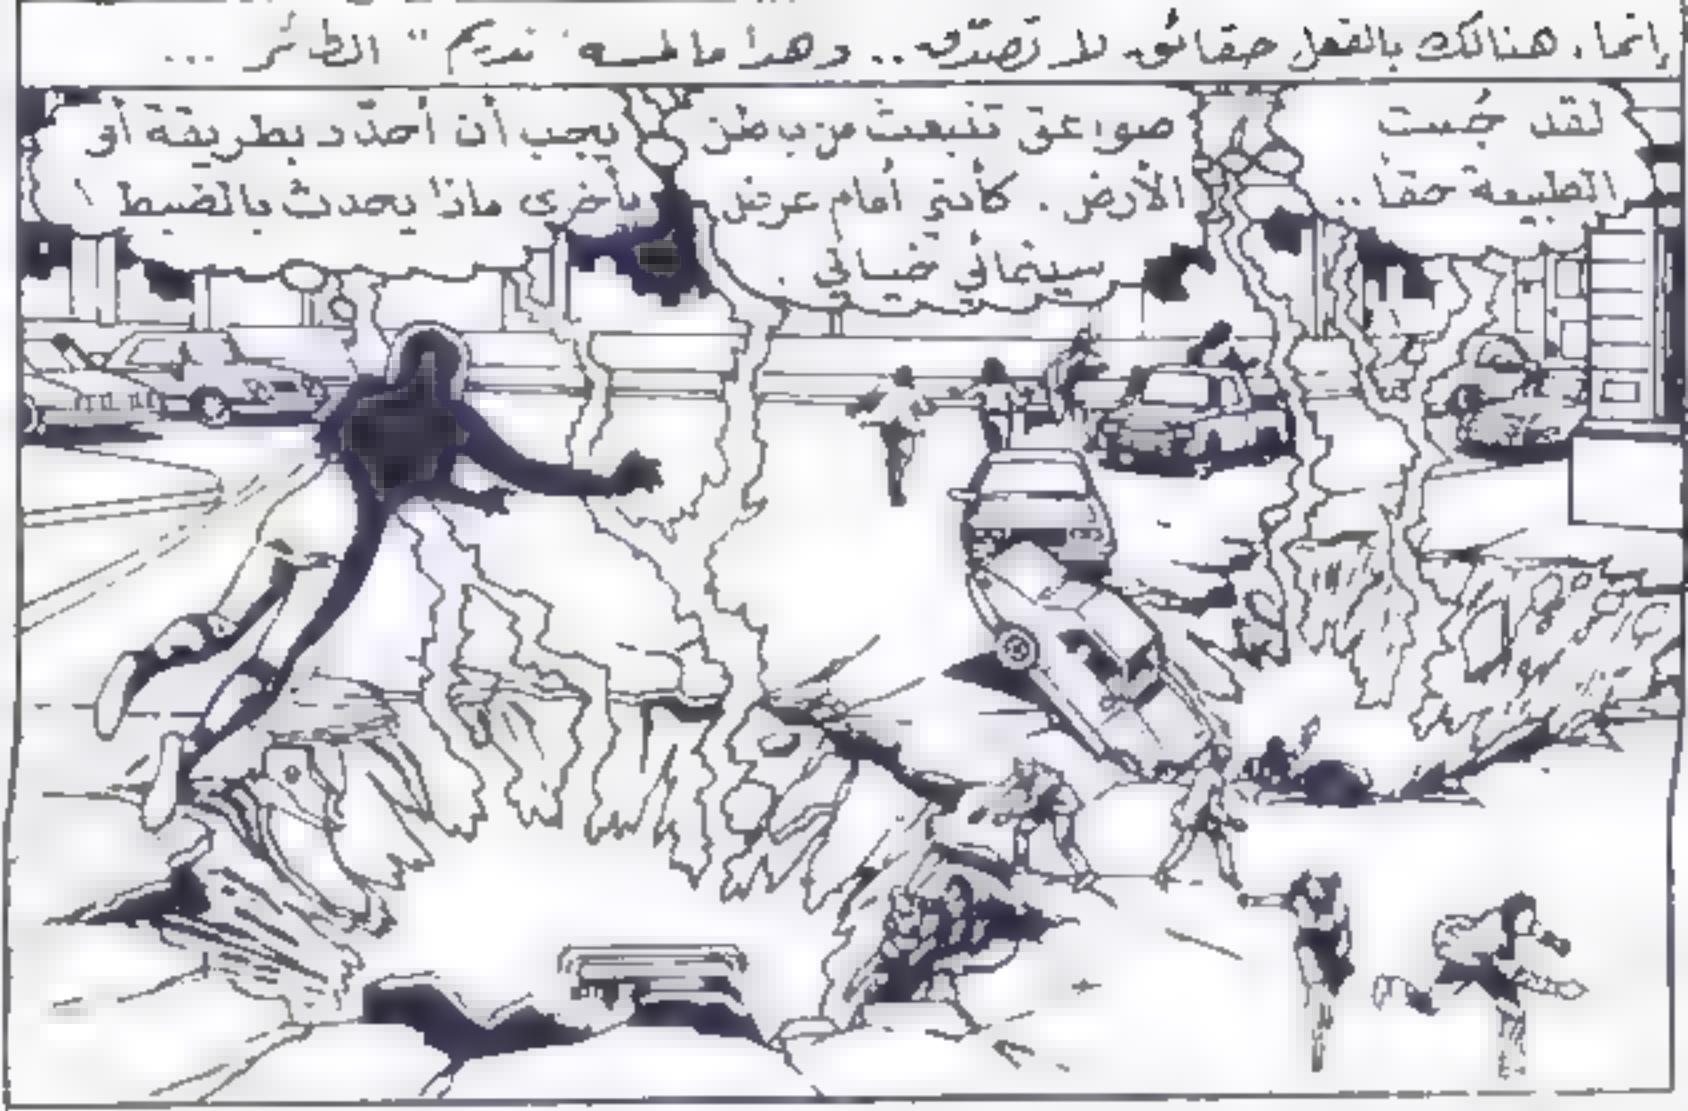 إنما، هنالك بالفعل حقائق لا تصدّق.. وهذا ما لمسه "نديم" الطائر ...
لقد جُست
الطبيعة حقا..
صواعق تنبعث من باطن
الأرض. كأنني أمام عرض
سينمائي خيالي.
يجب أن أحدّد بطريقة أو
بأخرى ماذا يحدث بالضبط